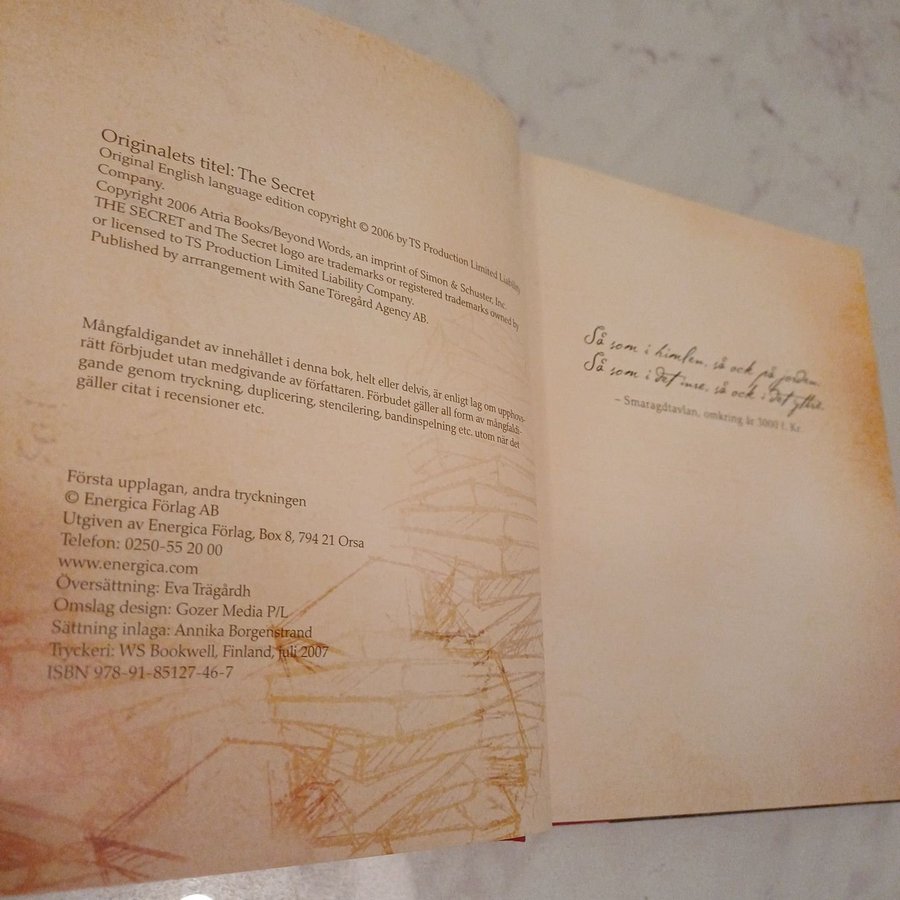 Originalets titel: The Secret
Original English language edition copyright © 2006 by TS Production Limited Liability
Company.
Copyright 2006 Atria Books/Beyond Words, an imprint of Simon & Schuster, Inc.
THE SECRET and The Secret logo are trademarks or registered trademarks owned by
or licensed to TS Production Limited Liability Company.
Published by arrrangement with Sane Töregård Agency AB.
Mångfaldigandet av innehållet i denna bok, helt eller delvis, är enligt lag om upphovs-
rätt förbjudet utan medgivande av författaren. Förbudet gäller all form av mångfaldi-
gande genom tryckning, duplicering, stencilering, bandinspelning etc. utom när det
gäller citat i recensioner etc.
Första upplagan, andra tryckningen
© Energica Förlag AB
Utgiven av Energica Förlag, Box 8, 794 21 Orsa
Telefon: 0250-55 20 00
www.energica.com
Översättning: Eva Trägårdh
Omslag design: Gozer Media P/L
Sättning inlaga: Annika Borgenstrand
Tryckeri: WS Bookwell, Finland, juli 2007
ISBN 978-91-85127-46-7
Så som i himlen, så ock på jorden.
Så som i det inre, så ock i det yttre.
– Smaragdtavlan, omkring år 3000 f. Kr.